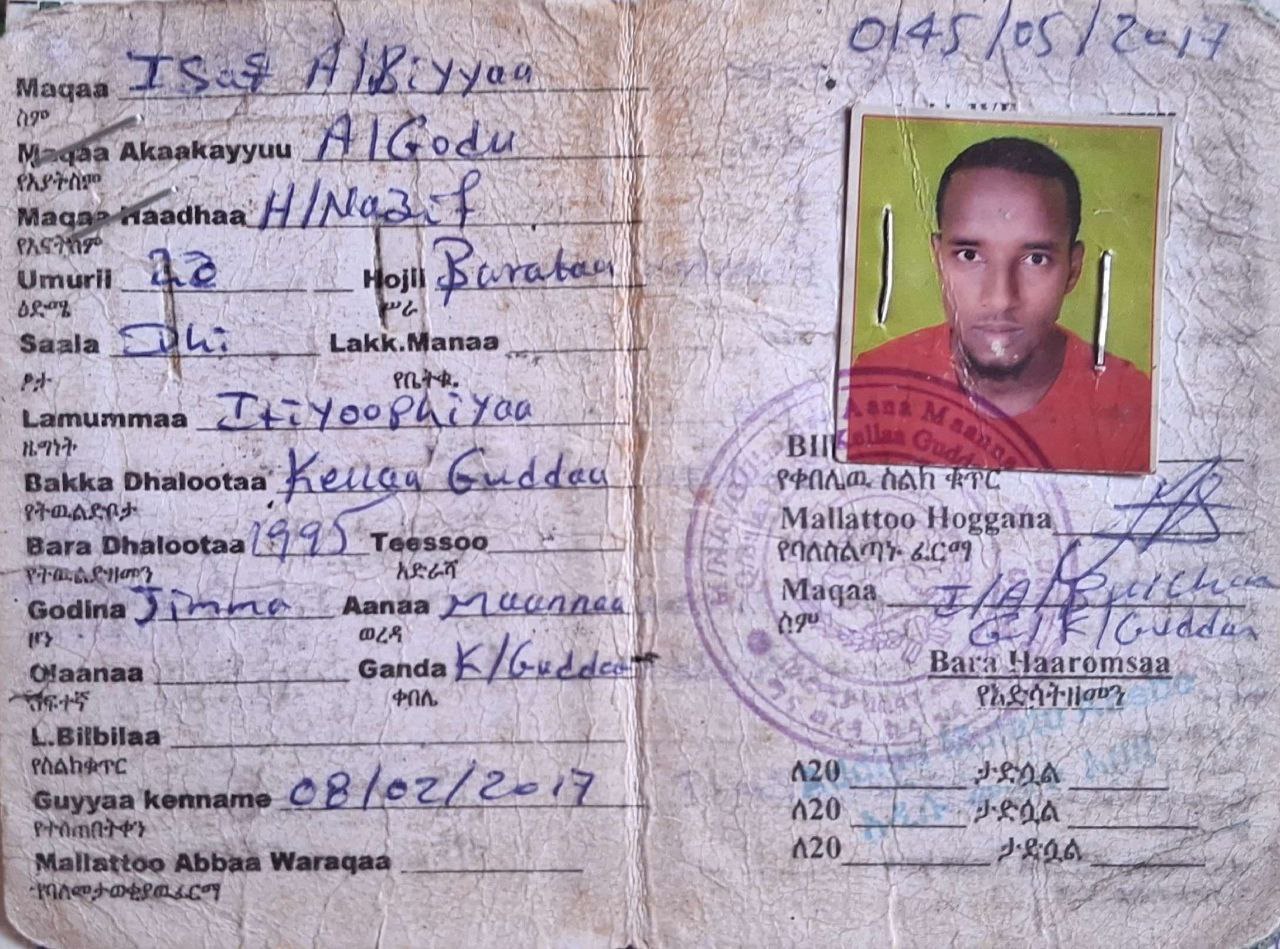 Maqaa Isaq A/Biyyaa
ስም
Maqaa Akaakayyuu A/Godu
የአያትስም
Maqaa Haadhaa H/Nazif
የእናትስም
Umurii 22 Hojii Barataa
ዕድሜ ሥራ
Saala Dhi Lakk.Manaa
ፆታ የቤትቁ.
Lamummaa Itiyoophiyaa
ዜግነት
Bakka Dhalootaa Kellaa Guddaa
የትዉልድቦታ
Bara Dhalootaa 1995 Teessoo
የትዉልድዘመን አድራሻ
Godina Jimma Aanaa Maannaa
ዞን ወረዳ
Olaanaa Ganda K/Guddaa
ከፍተኛ ቀበሌ
L.Bilbilaa
የስልክቁጥር
Guyyaa kenname 08/02/2017
የተሰጠበትቀን
Mallattoo Abbaa Waraqaa
የባለመታወቂያዉፊርማ
0145/05/2017
Aana Maanna
Kellaa Gudd
Bil
የቀበሌዉ ስልክ ቁጥር
Mallattoo Hoggana
የባለስልጣኑ ፊርማ
Maqaa I/A/Bulchaa
ስም G/K/Guddaa
Bara Haaromsaa
የእድሳትዘመን
ለ20 ታድሷል
ለ20 ታድሷል
ለ20 ታድሷል